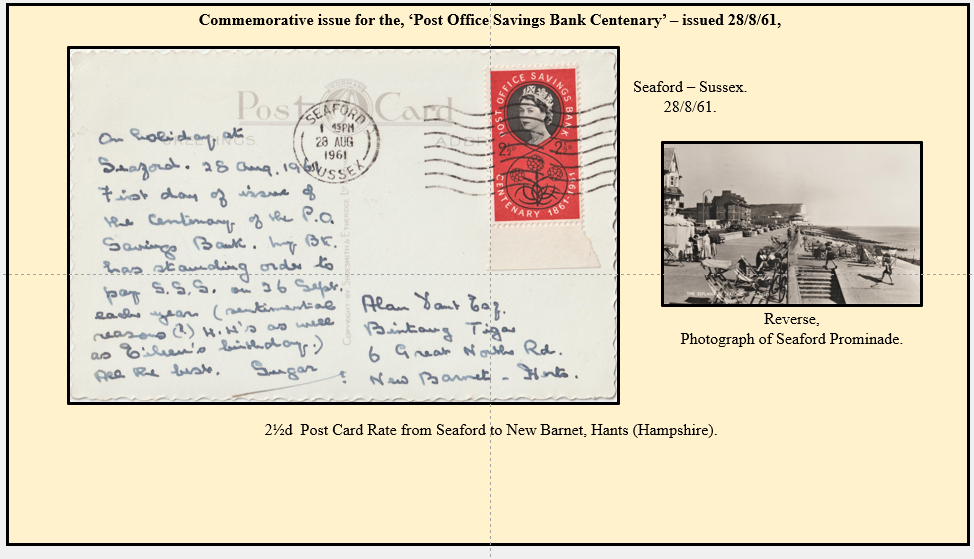 Commemorative issue for the, ‘Post Office Savings Bank Centenary’ – issued 28/8/61,
Post Card
GREETINGS
SEAFORD
1 45PM
28 AUG
1961
SUSSEX
POST OFFICE SAVINGS BANK
2½D 2½D
CENTENARY 1861-1961
On holiday at
Seaford. 28 Aug. 1961
First day of issue of
the Centenary of the P.O.
Savings Bank. My Bk.
has standing order to
pay S.S.S. on 26 Sept.
each year (sentimental
reasons (?) H.H's as well
as Eileen's birthday.)
All the best. Sugar
Alan Dant Esq.
Bintang Tiga
6 Great North Rd.
New Barnet - Herts.
Seaford – Sussex.
28/8/61.
Reverse,
Photograph of Seaford Prominade.
2½d Post Card Rate from Seaford to New Barnet, Hants (Hampshire).